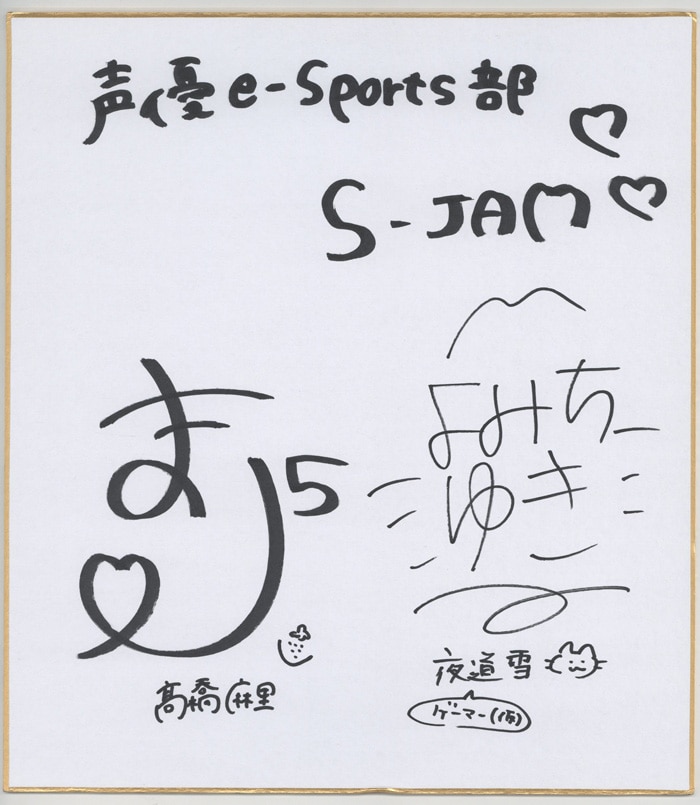 声優e-Sports部
S-JAM
まりん
髙橋麻里
よみち
ゆき
夜道雪
ゲーマー(仮)